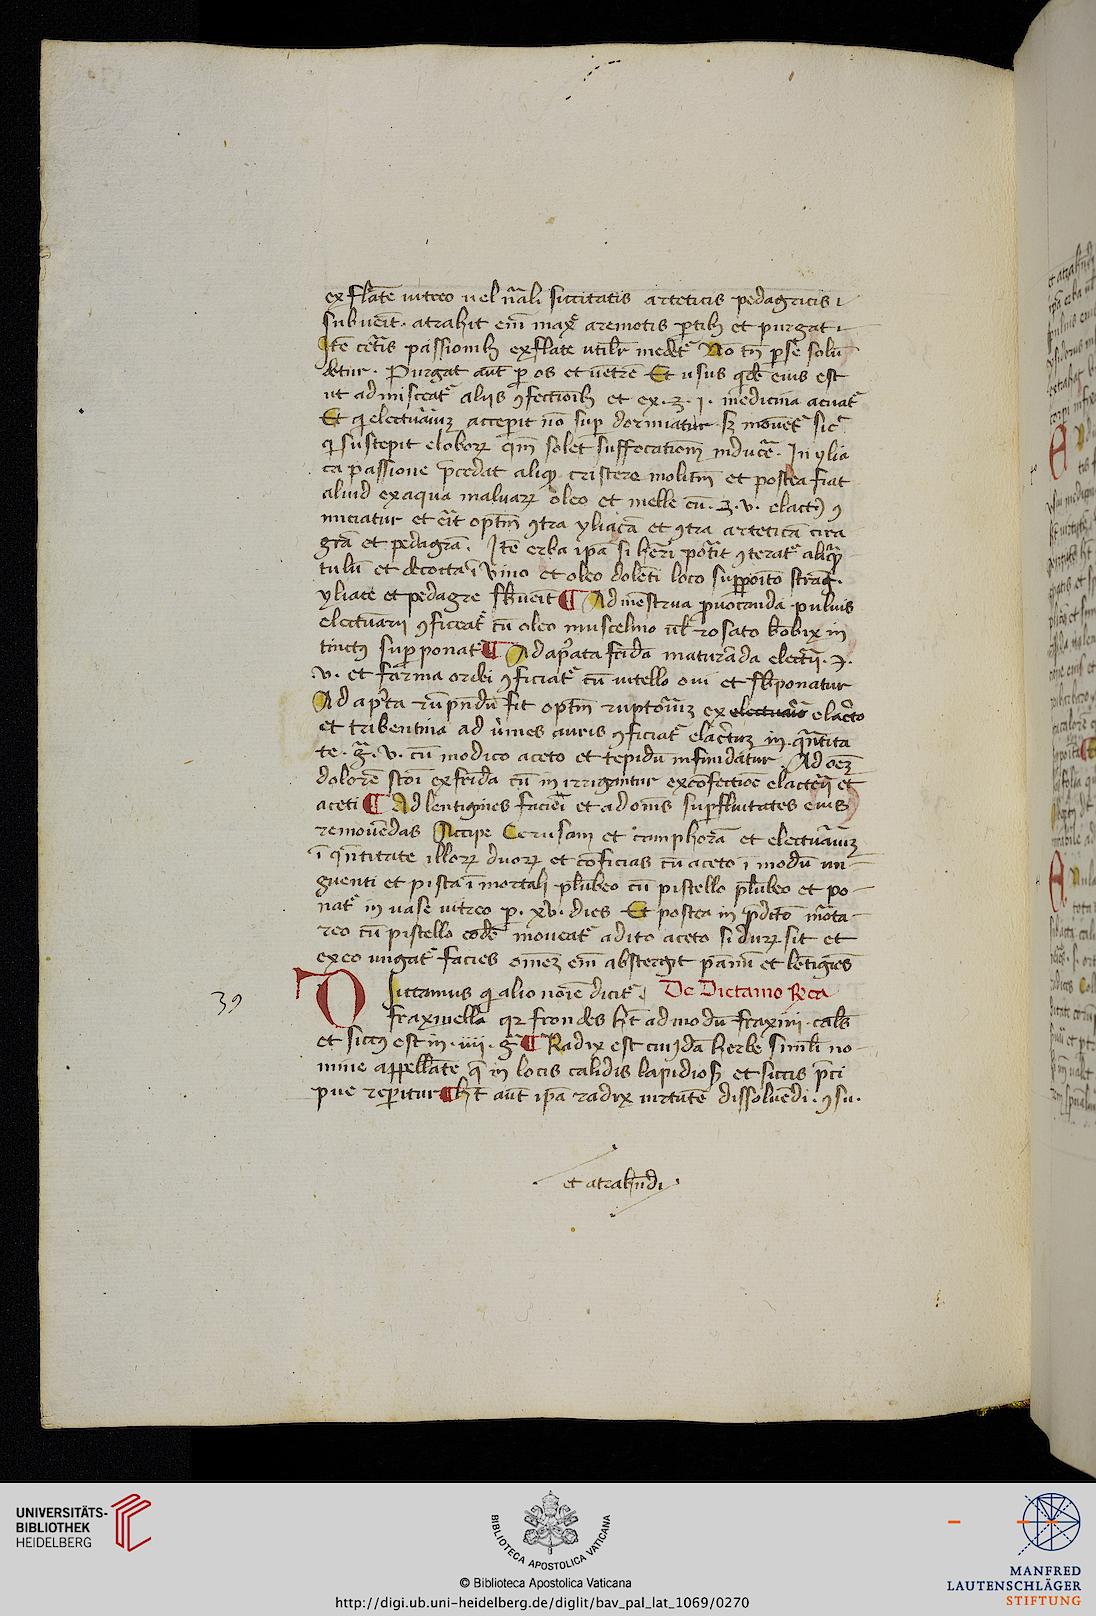 ex flāte uitreo uel nāli siccitatis arteticis pedagricis
subueīt. atrahit em̄ max̄ aremotis ptib3 et purgat
Itē cet̄is passionib3 ex flāte utilr̄ medet᷑ Nō tn̄ p se solū
detur. Purgat aūt p os et uētrē Et usus qdē eius est
ut admisceat᷑ alijs 9fectioib3 et ex. ʒ. j. medicina acuat᷑
Et q electuāiuz acceperit nō sup dormiatur s3 mouet᷑ sic᷑
q suscepit eleborꝝ qm̄ solet suffocationē inducē. In ylia
ca passione p̄cedat aliq̄ cristere molitiū et postea fiat
aliud ex aqua maluarꝝ oleo et melle cū. ʒ. v. elact̄ij 9
iniciatur et erit optm̄ 9tra yliacā et 9tra arteticā cira
grā et pedagrā. Itē erba ipā si hēri pot̄it 9terat᷑ aliqn̄
tulū et decocta ī vino et oleo dolēti loco suppoīto strāg.
yliace et pedagre sbueīt ¶ Ad mēstrua prouocanda puluis
electuarij 9ficeat᷑ cū oleo muscelino ul̄ rosato bōbix in
tinct9 supponat᷑ ¶ Ad ap̄ata frida maturāda electīj. ʒ.
v. et farīna ordei 9ficiat᷑ cū uitello oui et sbponatur
Ad ap̄ta rūpn̄dū fit optm̄ ruptoīuz ex electuaīo elact̄o
et tribentina ad ūmes auris 9ficiat᷑ elact̄iuz in q̄ntita
te. ʒ. v. cū modico aceto et tepidū infundatur. Ad oēz
dolorē stoī ex frida cū in irrigantur ex cōfectioē elacterij et
aceti ¶ Ad lentigines faciēi et ad om̄s supfluitates eius
remouēdas Accipe Cerusam et camphorā et electuāiuz
ī q̄ntitate illorꝝ duorꝝ et cōficias cū aceto ī modū un
guenti et pista ī mortali plūbeo cū pistello plūbeo et po
nat᷑ in uase uitreo p. xv. dies Et postea in p̄dicto mōta
reo cū pistello eodē moueat᷑ adito aceto si durꝝ sit et
ex eo ungat᷑ facies om̄ez em̄ abstergit pānū et lētigīes
39
Dittamus q alio noīe dicit᷑ De Dictamo Rca
fraxinella qꝛ frondes h̄t ad modū fraxini. calś
et sicc9 est in. iiii. ḡ ¶ Radix est cui9dā herbe simili no
mine appellāte q̄ in locis calidis lapidios3 et siccis p̄ci
pue reperitur ¶ h̄t aūt ipā radix uirtutē dissoluēdi. 9su.
et atrahn̄di
UNIVERSITÄTS-
BIBLIOTHEK
HEIDELBERG
BIBLIOTECA APOSTOLICA VATICANA
© Biblioteca Apostolica Vaticana
http://digi.ub.uni-heidelberg.de/diglit/bav_pal_lat_1069/0270
MANFRED
LAUTENSCHLÄGER
STIFTUNG